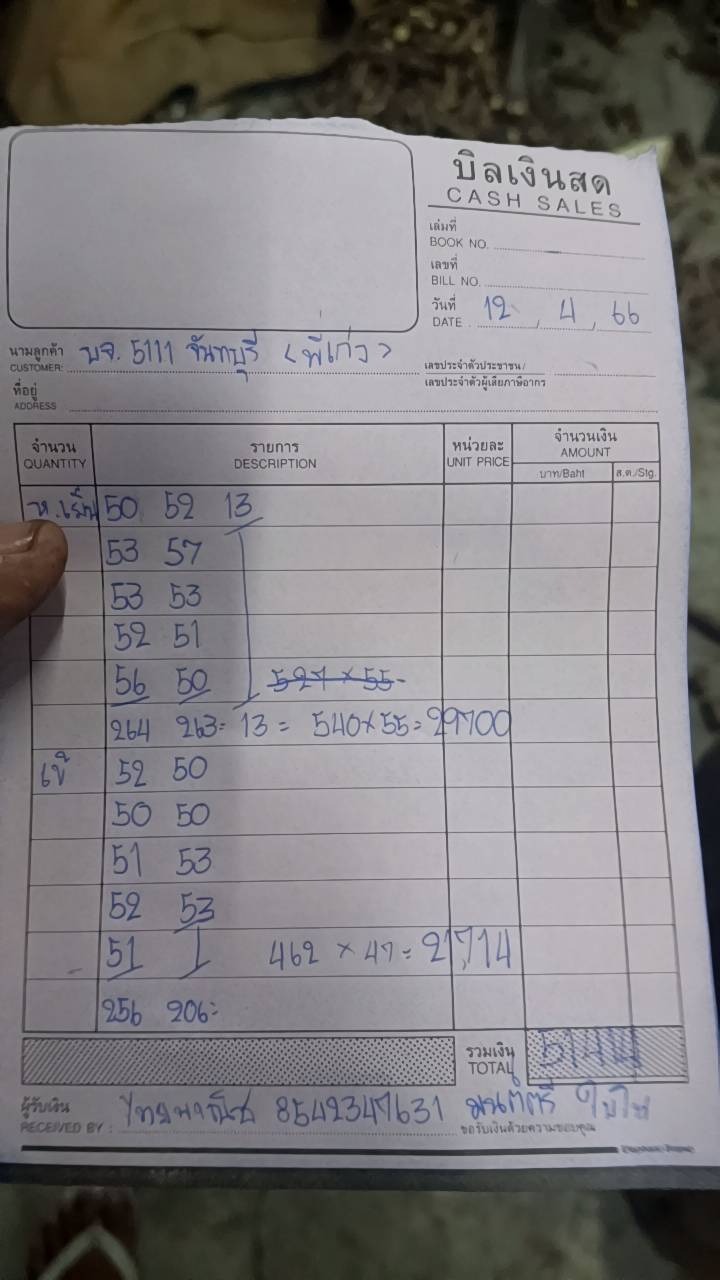 บิลเงินสด
CASH SALES
เล่มที่
BOOK NO.
เลขที่
BILL NO.
วันที่
DATE 12, 4, 66
นามลูกค้า บจ. 5111 จันทบุรี <พี่แก้ว>
CUSTOMER:
เลขประจำตัวประชาชน/
เลขประจำตัวผู้เสียภาษีอากร
ที่อยู่
ADDRESS
จำนวน รายการ หน่วยละ จำนวนเงิน
QUANTITY DESCRIPTION UNIT PRICE AMOUNT
บาท/Baht ส.ต./Stg.
50 52 13
53 57
53 53
52 51
56 50 527 x 55
264 263= 13 = 540x55=29700
52 50
50 50
51 53
52 53
51 1 462 x 47= 21,714
256 206=
รวมเงิน
TOTAL 51414
ผู้รับเงิน ไทยพาณิชย์ 8542347631 มนต์ตรี ใบไม้
RECEIVED BY : ขอรับเงินด้วยความขอบคุณ